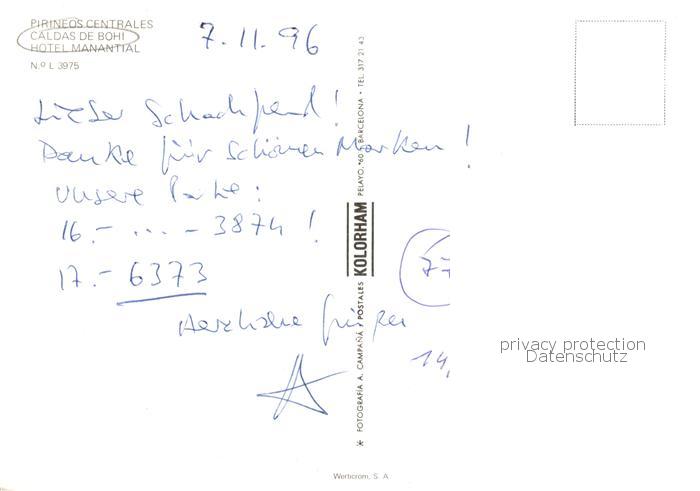 PIRINEOS CENTRALES
CALDAS DE BOHI
HOTEL MANANTIAL
N.º L 3975
7.11.96
Lieber Schachfreund!
Danke für schönen Marken!
Unsere Partie:
16.- ... - 3874!
17.- 6373
Herzliche Grüße
77
14,
* FOTOGRAFIA A. CAMPAÑÁ / POSTALES KOLORHAM PELAYO, 60 / BARCELONA • TEL. 317 21 43
privacy protection
Datenschutz
Werticrom, S. A.